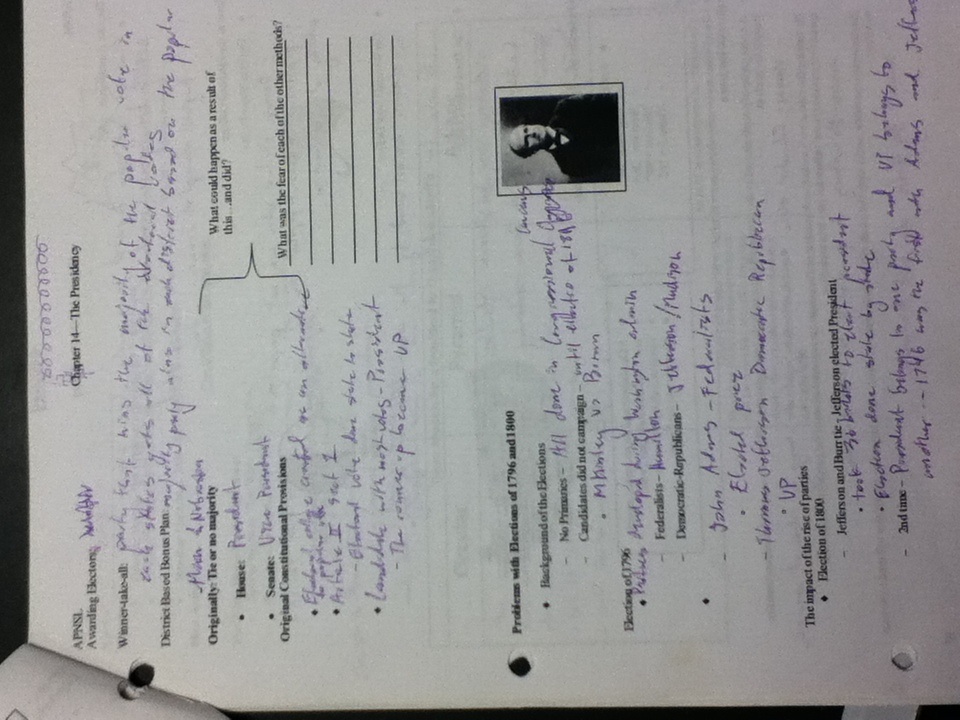 APNSL
Chapter 14—The Presidency
Awarding Electors:
Winner-take-all: party that wins the majority of the popular vote in
each states gets all of the electoral votes
District Based Bonus Plan: majority party wins in each district based on the popular
& Nebraska
Originally: Tie or no majority
• House: President
• Senate: Vice President
What could happen as a result of
this…and did?
Original Constitutional Provisions
What was the fear of each of the other methods?
• Electoral college created as an alternative
to popular vote
• Article II sect 1
- Electoral vote done state to state
• Candidate with most votes - President
- The runner up became VP
Problems with Elections of 1796 and 1800
♦ Background of the Elections
– No Primaries – All done in Congressional caucus
– Candidates did not campaign – until election of 1896
• McKinley vs
Election of 1796
• Parties developed during Washington admin
– Federalists – Hamilton
– Democratic-Republicans – Jefferson/Madison
– John Adams – Federalists
• Elected prez
– Thomas Jefferson Democratic Republican
• VP
The impact of the rise of parties
♦ Election of 1800
– Jefferson and Burr tie - Jefferson elected President
• took 36 ballots to elect president
• Election done state by state
– 2nd time – President belongs to one party and VP belongs to
another - 1796 was the first with Adams and